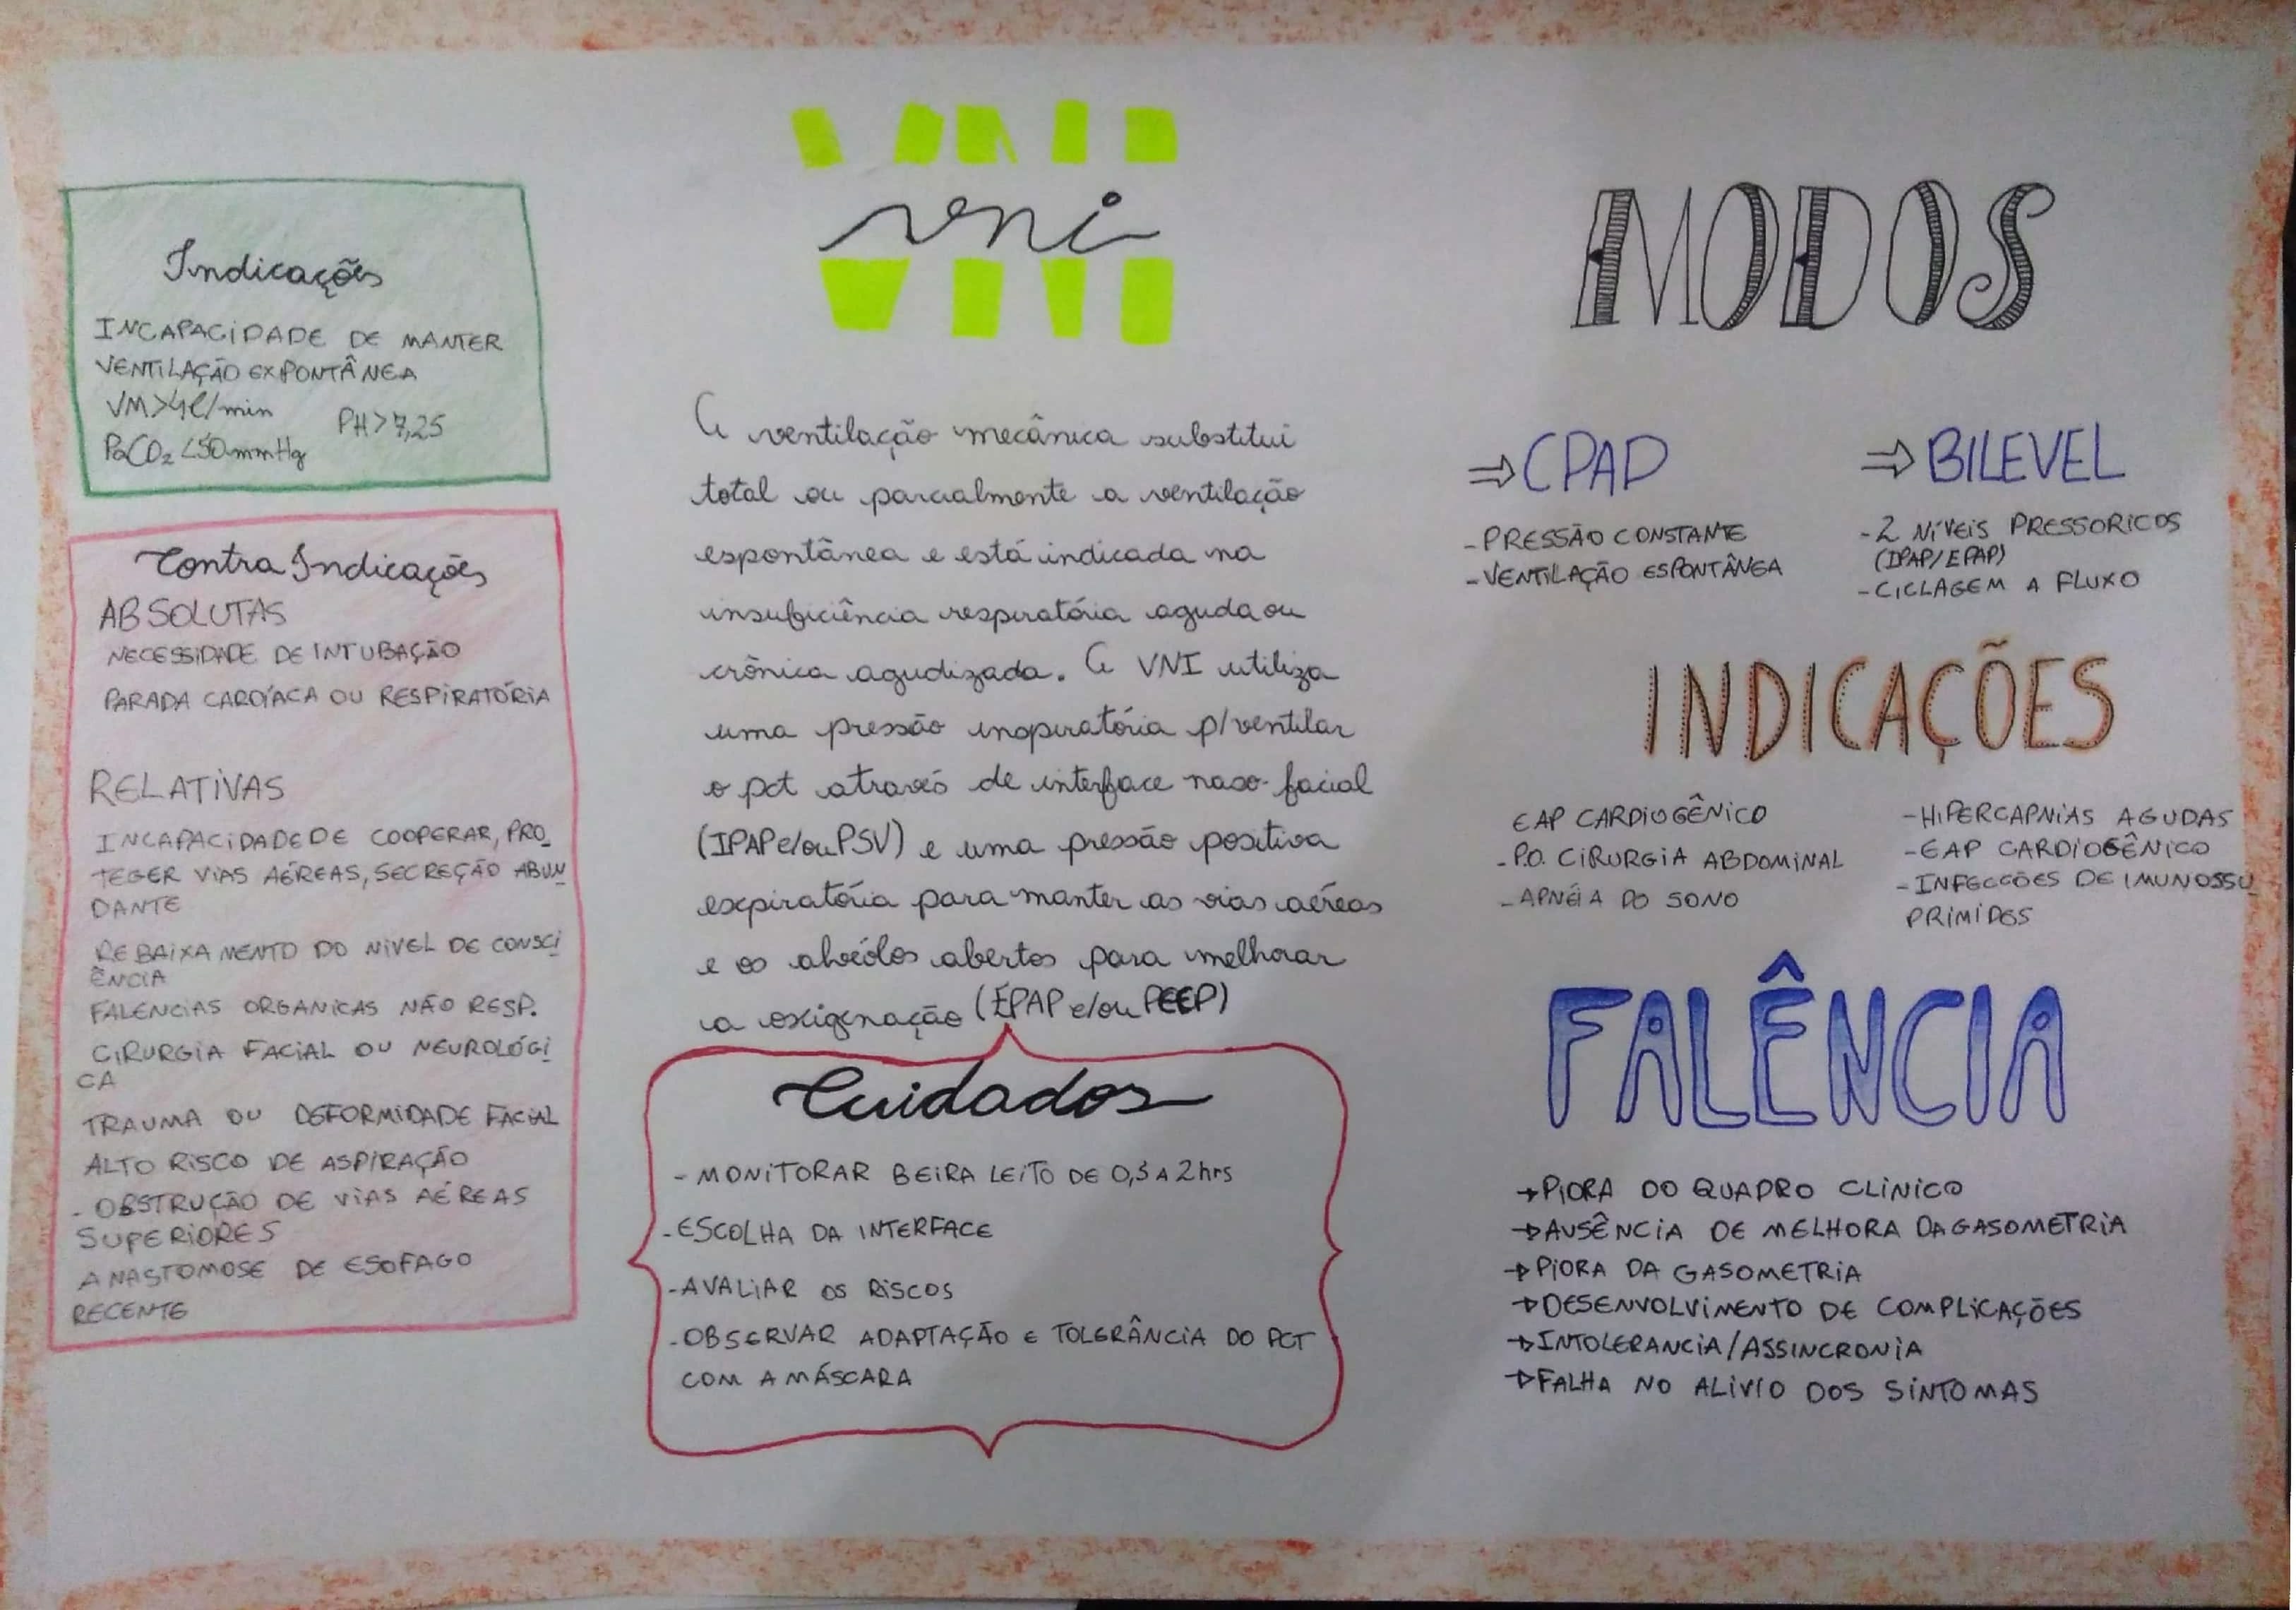 Indicações
INCAPACIDADE DE MANTER
VENTILAÇÃO EXPONTÂNEA
VM>4l/min
PH>7,25
PaCO₂ <50mmHg
Contra Indicações
ABSOLUTAS
NECESSIDADE DE INTUBAÇÃO
PARADA CARDÍACA OU RESPIRATÓRIA
RELATIVAS
INCAPACIDADE DE COOPERAR, PRO
TEGER VIAS AÉREAS, SECREÇÃO ABUN
DANTE
REBAIXAMENTO DO NIVEL DE CONSCI
ÊNCIA
FALENCIAS ORGANICAS NÃO RESP.
CIRURGIA FACIAL OU NEUROLÓGI
CA
TRAUMA OU DEFORMIDADE FACIAL
ALTO RISCO DE ASPIRAÇÃO
- OBSTRUÇÃO DE VIAS AÉREAS
SUPERIORES
ANASTOMOSE DE ESOFAGO
RECENTE
VNI
vni
A ventilação mecânica substitui
total ou parcialmente a ventilação
espontânea e está indicada na
insuficiência respiratória aguda ou
crônica agudizada. A VNI utiliza
uma pressão inspiratória p/ventilar
o pct através de interface naso-facial
(IPAP e/ou PSV) e uma pressão positiva
expiratória para manter as vias aéreas
e os alvéolos abertos para melhorar
a oxigenação (EPAP e/ou PEEP)
Cuidados
- MONITORAR BEIRA LEITO DE 0,5 A 2hrs
- ESCOLHA DA INTERFACE
- AVALIAR OS RISCOS
- OBSERVAR ADAPTAÇÃO E TOLERÂNCIA DO PCT
COM A MÁSCARA
MODOS
⇒ CPAP
- PRESSÃO CONSTANTE
- VENTILAÇÃO ESPONTÂNEA
⇒ BILEVEL
- 2 NÍVEIS PRESSORICOS
(IPAP/EPAP)
- CICLAGEM A FLUXO
INDICAÇÕES
EAP CARDIOGÊNICO
- P.O. CIRURGIA ABDOMINAL
- APNÉIA DO SONO
- HIPERCAPNIAS AGUDAS
- EAP CARDIOGÊNICO
- INFECCÕES DE IMUNOSSU
PRIMIDOS
FALÊNCIA
→ PIORA DO QUADRO CLINICO
→ AUSÊNCIA DE MELHORA DA GASOMETRIA
→ PIORA DA GASOMETRIA
→ DESENVOLVIMENTO DE COMPLICAÇÕES
→ INTOLERANCIA/ASSINCRONIA
→ FALHA NO ALIVIO DOS SINTOMAS